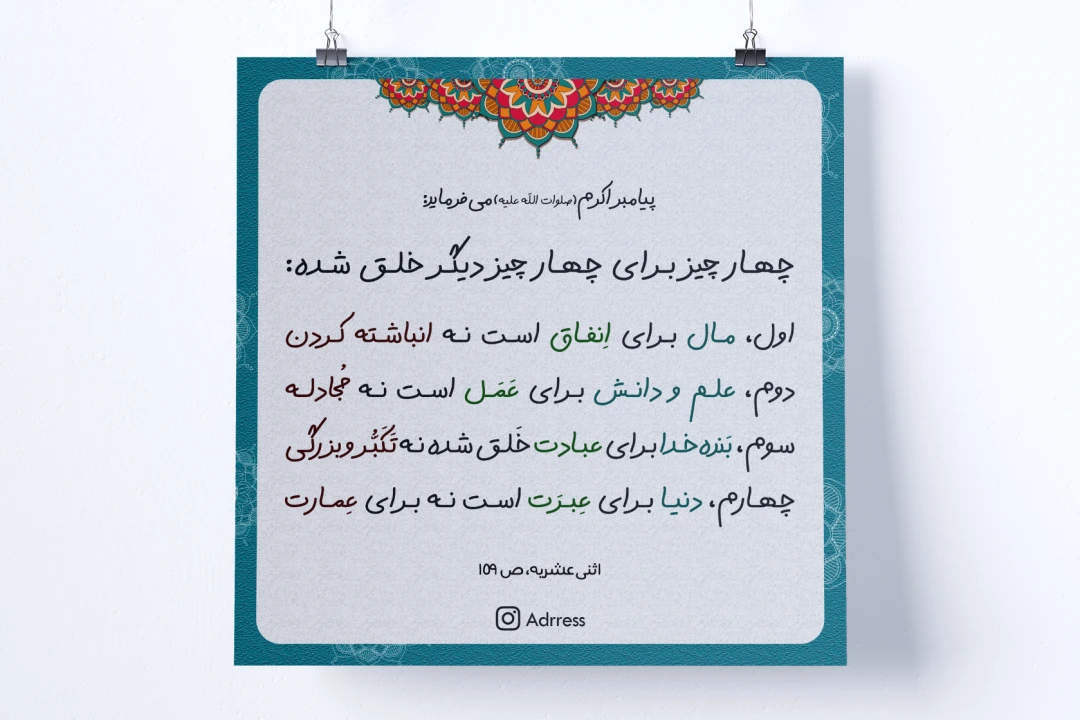 پیامبر اکرم (صلوات اللّه علیه) می فرماید:
چهار چیز برای چهار چیز دیگر خلق شده:
اول، مال برای اِنفاق است نه انباشته کردن
دوم، علم و دانش برای عَمَل است نه مُجادله
سوم، بَنده خدا برای عبادت خَلق شده نه تَکَبُّر و بزرگی
چهارم، دنیا برای عِبرَت است نه برای عِمارت
اثنی عشریه، ص ۱۵۹
Adrress